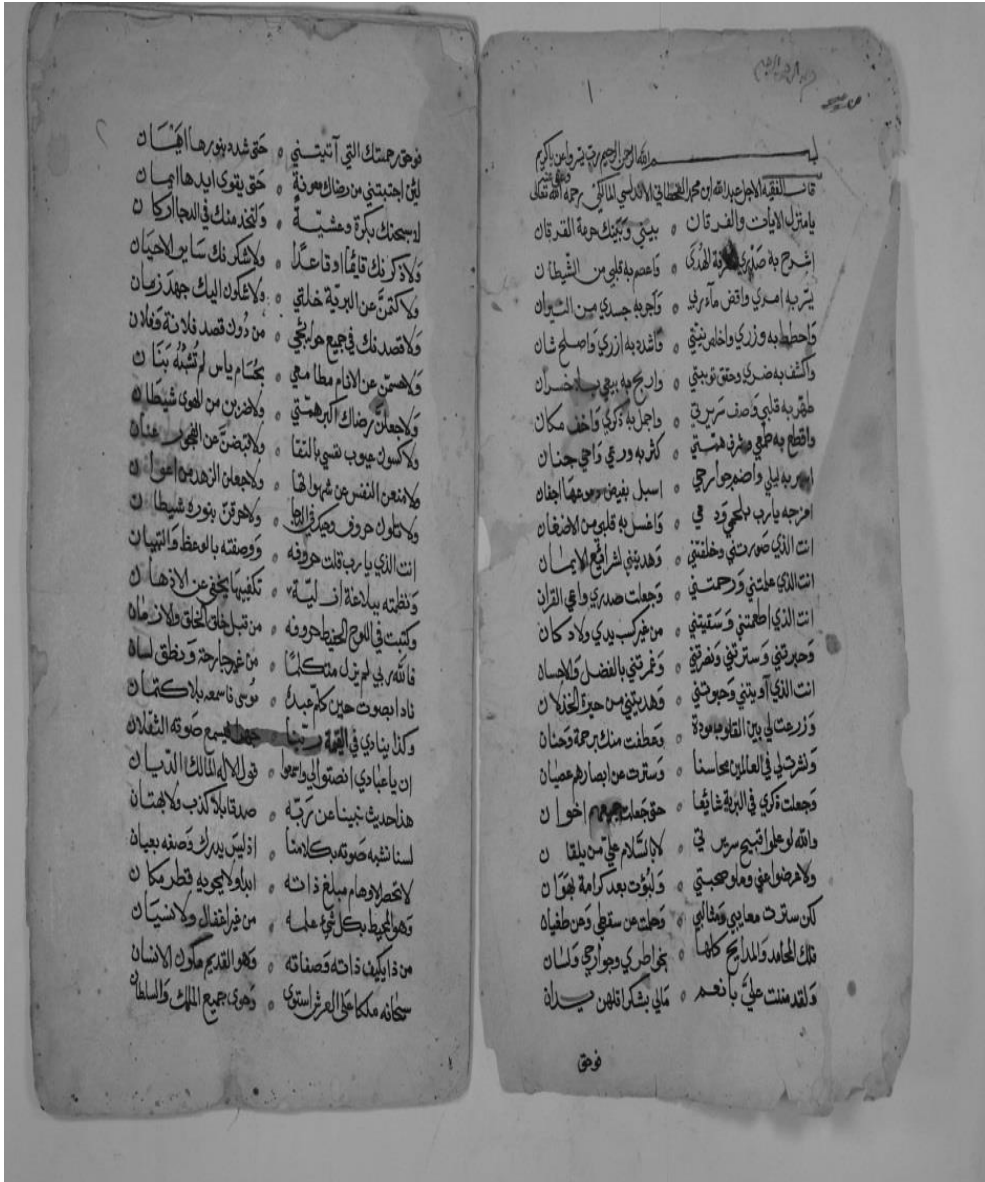 بسم الله الرحمن الرحيم رب يسر واعن ياكريم
قال الفقيه الاجل عبدالله ابن محمد القحطاني الاندلسي المالكي رحمه الله تعالى
يا منزل الايات والفرقان ه بيني وبينك حرمة القرقان
اشرح به صدري لمعرفة الهدى ه واعصم به قلبي من الشيطان
يسر به امري واقض مآءربي ه واجر به جسدي من النيران
واحطط به وزري واخلص نيتي ه واشدد به ازري واصلح شان
واكشف به ضري وحقق توبيتي ه واربح به بيعي بلا خسران
طهر به قلبي وصف سريرتي ه واجمل به ذكري واخف مكان
واقطع به طمعي وشرف همتي ه كثر به ورعي واحي جنان
اسهر به ليلي واضم جوارحي ه اسبل بفيض دموعها اجفان
امزجه يارب بلحمي ودمي ه واغسل به قلبي من الاضغان
انت الذي صورتني وخلقتني ه وهديتني لشرائع الايمان
انت الذي علمتني ورحمتني ه وجعلت صدري واعي القران
انت الذي اطعمتني وسقيتني ه من غير كسب يدي ولا دكان
وجبرتني وسترتني ونصرتني ه وغمرتني بالفضل والاحسان
انت الذي آويتني وحبوتني ه وهديتني من حيرة الخذلان
وزرعت لي بين القلوب مودة ه وعطفت منك برحمة وحنان
ونشرت لي في العالمين محاسنا ه وسترت عن ابصارهم عصيان
وجعلت ذكري في البرية شائعا ه حتى جعلت جميعهم اخوان
والله لو علموا قبيح سريرتي ه لابا السلام علي من يلقان
ولاعرضوا عني وملو صحبتي ه ولبؤت بعد كرامة بهوان
لكن سترت معايبي ومثالبي ه وحلمت عن سقطي وعن طغيان
فلك المحامد والمدايح كلها ه بخواطري وجوارحي ولسان
ولقد مننت علي بانعم ه مالي بشكر اقلهن يدان
فوحق
فوحق رحمتك التي آتيتني ه حتى شدد بنورها
لئن اجتبتني من رضاك معونة ه حتى يقوى ايدها ايمان
لاسبحنك بكرة وعشية ه ولتخدمنك في الدجا اركان
ولاذكرنك قايما او قاعدا ه ولاشكرنك ساير الاحيان
ولاكتمن عن البرية خلتي ه ولاشكون اليك جهد زمان
ولاقصدنك في جميع حوائجي ه من دون قصد فلانة وفلان
ولاحسمن عن الانام مطامعي ه بحسام ياس لم تشنه بنان
ولاجعلن رضاك اكبر همتي ه ولاضربن من الهوى شيطان
ولاكسون عيوب نفسي بالتقا ه ولاقبضن عن الفجور عنان
ولامنعن النفس عن شهواتها ه ولاجعلن الزهد من اعوان
ولاتلون حروف وحيك في الدجا ه ولاحرقن بنوره شيطان
انت الذي يا رب قلت حروفه ه ووصفته بالوعظ والتبيان
ونظمته ببلاغة ازلية ه تكفيها يخفى عن الاذهان
وكتبت في اللوح الحفيظ حروفه ه من قبل خلق الخلق والازمان
فالله ربي لم يزل متكلما ه من غير جارحة ونطق لسان
نادا بصوت حين كلم عبده ه موسى فاسمعه بلا كتمان
وكذا ينادي في القيمة ربنا ه جهرا فيسمع صوته الثقلان
ان يا عبادي انصتو الي واسمعوا ه قول الاله المالك الديان
هذا حديث نبينا عن ربه ه صدقا بلا كذب ولا بهتان
لسنا نشبه صوته بكلامنا ه اذ ليس يدرك وصفه بعيان
لا تحصر الاوهام مبلغ ذاته ه ابدا ولا يحويه قطر مكان
وهو المحيط بكل شيء علمه ه من غير اغفال ولا نسيان
من ذا يكيف ذاته وصفاته ه وهو القديم مكون الانسان
سبحانه ملكا على العرش استوى ه وحوى جميع الملك والسلطان